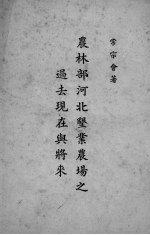 常宗會著
農林部河北墾業農場之
過去現在與將來